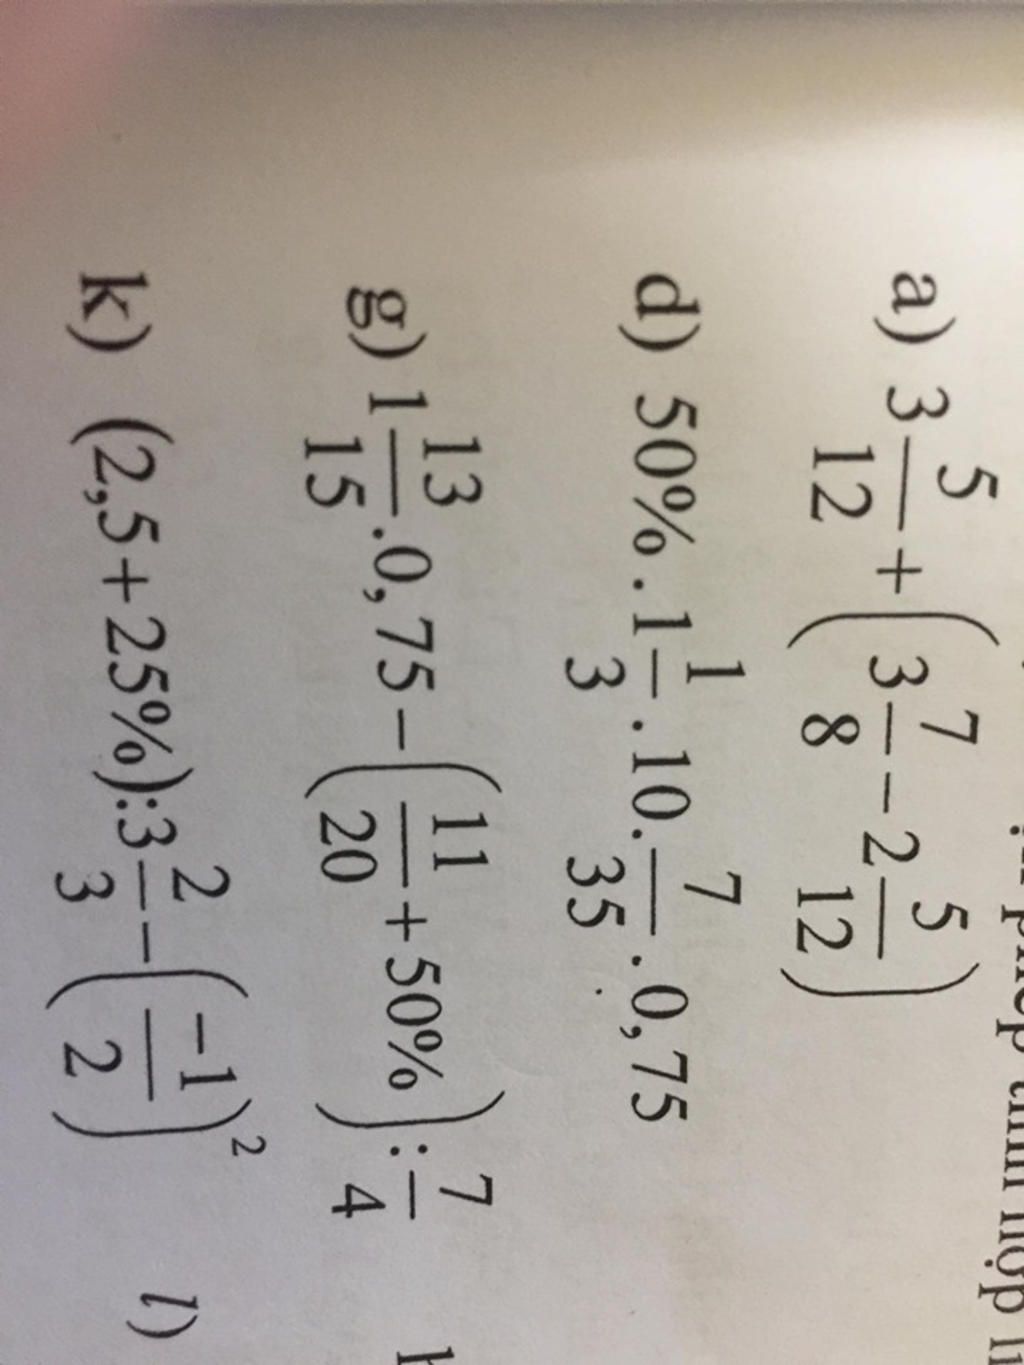 phép tính hợp
a) 3 5/12 + (3 7/8 − 2 5/12)
d) 50% . 1 1/3 . 10 . 7/35 . 0,75
g) 1 13/15 . 0,75 − (11/20 + 50%) : 7/4
k) (2,5 + 25%) : 3 2/3 − (−1/2)²
l)